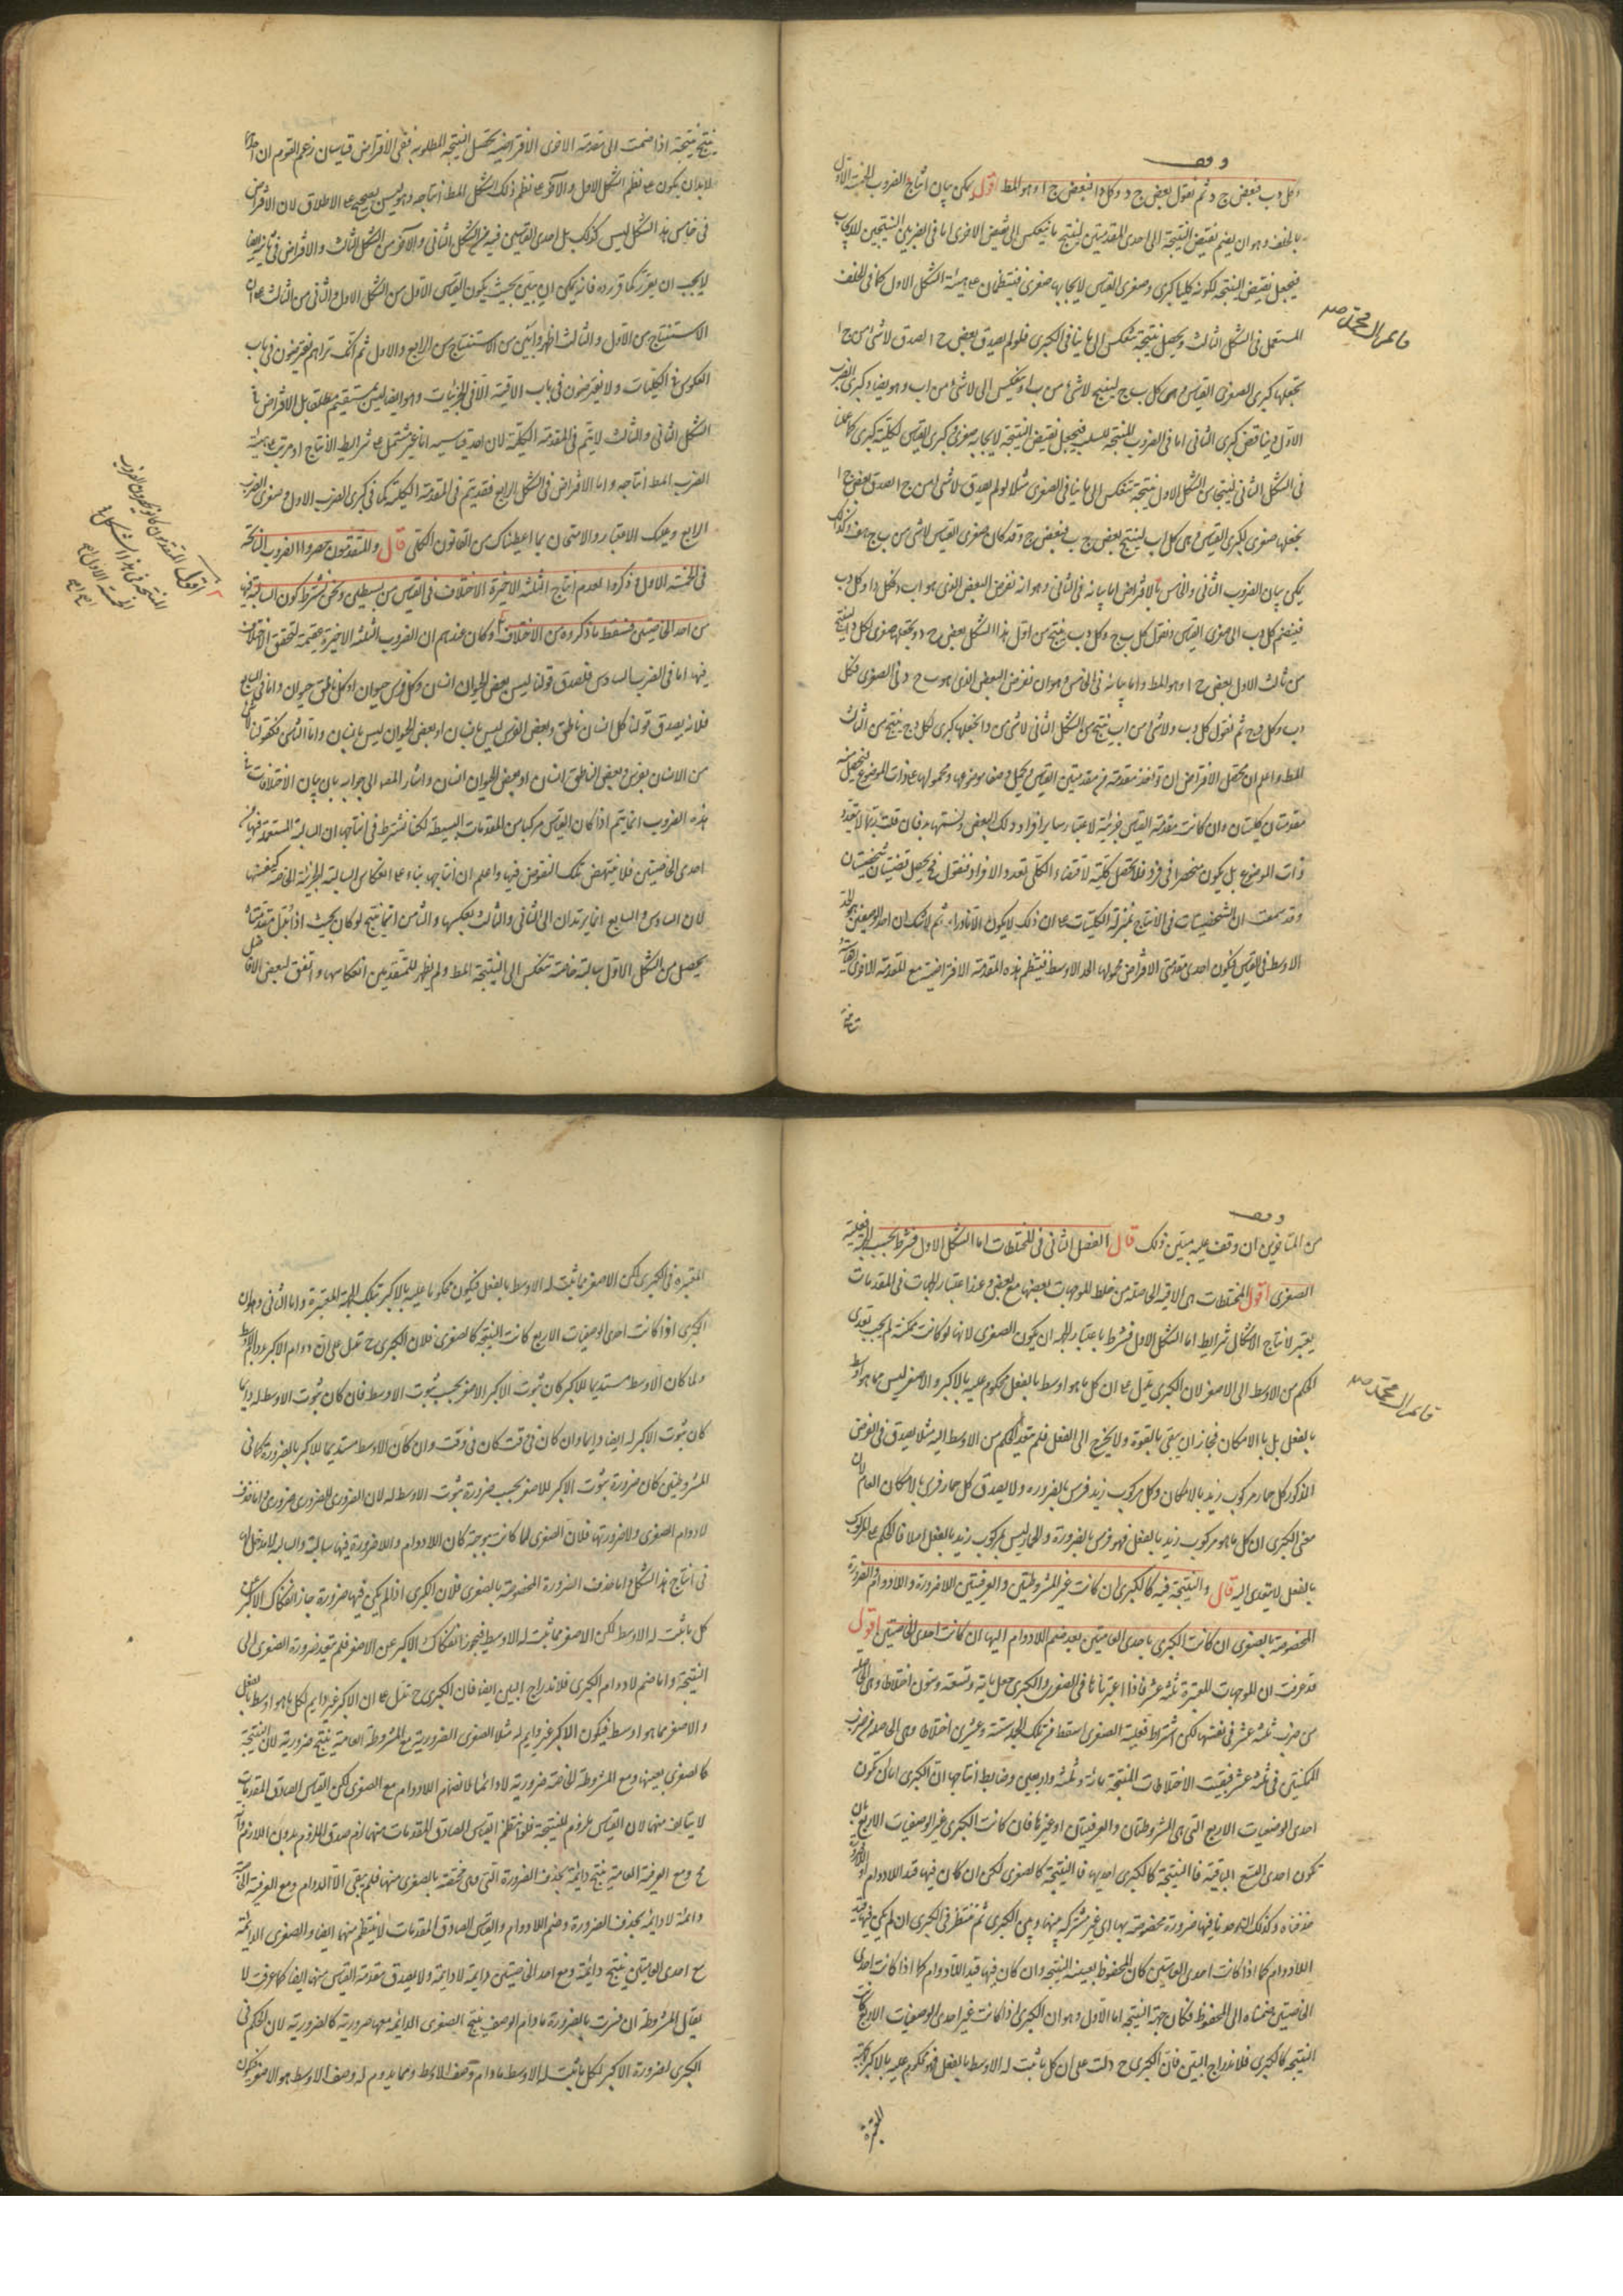 وقف
وكل دب فبعض ج د ثم نقول بعض ج د وكل دا فبعض ج ا وهو المط اقول يمكن بيان انتاج الضروب الخمسة الاول
بالخلف وهو ان يضم نقيض النتيجة الى احدى المقدمتين لينتج ما ينعكس الى نقيض الاخرى اما فى الضربين المنتجين للايجاب
فيجعل نقيض النتيجة لكونه كليا كبرى وصغرى القياس لايجابها صغرى فينتظمان على هيئة الشكل الاول كما فى الخلف
المستعمل فى الشكل الثالث ويحصل نتيجة تنعكس الى ما ينافى الكبرى فلو لم يصدق بعض ج ا لصدق لا شى من ج ا
نجعلها كبرى لصغرى القياس وهى كل ب ج لينتج لا شى من ب ا وينعكس الى لا شى من ا ب وهو يضاد كبرى الضرب
الاول ويناقض كبرى الثانى اما فى الضروب المنتجة للسلب فيجعل نقيض النتيجة لايجابه صغرى وكبرى القياس لكليته كبرى كما علمت
فى الشكل الثانى لينتجا من الشكل الاول نتيجة تنعكس الى ما ينافى الصغرى مثلا لو لم يصدق لا شى من ج ا لصدق بعض ج ا
نجعلها صغرى لكبرى القياس وهى كل ا ب لينتج بعض ج ب فبعض ب ج وقد كان صغرى القياس لا شى من ب ج هف وكذلك
يمكن بيان الضروب الثانى والخامس بالافتراض اما بيانه فى الثانى وهو ان نفرض البعض الذى هو ا ب د فكل د ا وكل د ب
فنضم كل د ب الى صغرى القياس ونقول كل ب ج وكل د ب ينتج من اول هذا الشكل بعض ج د ونجعلها صغرى لكل د ا لينتج
من ثالث الاول بعض ج ا وهو المط واما بيانه فى الخامس وهو ان نفرض البعض الذى هو ب ج د فى الصغرى فكل
د ب وكل د ج ثم نقول كل د ب ولا شى من ا ب ينتج من الشكل الثانى لا شى من د ا نجعلها كبرى لكل د ج ينتج من الثالث
المط واعلم ان محصل الافتراض ان تؤخذ مقدمة من مقدمتى القياس ويحمل وصفا موضوعها ومحمولها على ذات الموضوع ليحصل منه
مقدمتان كليتان وان كانت مقدمة القياس جزئية لاعتبار سائر افراد ذلك البعض وتسميتها د فان قلت ربما لا يتعدد
ذات الموضوع بل يكون منحصرا فى فرد فلا تحصل كلية لاقتضاء الكلى تعدد الافراد فنقول فح يحصل قضيتان شخصيتان
وقد سمعت ان الشخصيات فى الانتاج بمنزلة الكليات على ان ذلك لا يكون الا نادرا ثم لا شك ان احد الوصفين هو الحد
الاوسط فى القياس فيكون احدى مقدمتى الافتراض محمولها الحد الاوسط فينتظم هذه المقدمة الافتراضية مع المقدمة الاخرى
ينتج نتيجة اذا ضمت الى مقدمة الاخرى الافتراضية يحصل النتيجة المطلوبة ففى الافتراض قياسان زعم القوم ان احدهما
لا بد ان يكون على نظم الشكل الاول والآخر على نظم ذلك الشكل المط انتاجه وهو ليس بصحيح على الاطلاق لان الافتراض
فى خامس هذا الشكل ليس كذلك بل احدى القياسين فيه من الشكل الثانى والآخر من الشكل الثالث والافتراض فى ثانيه ايضا
لا يجب ان يقرر كما قرره فانه يمكن ان يبين بحيث يكون القياس الاول من الشكل الاول والثانى من الثالث على ان
الاستنتاج من الاول والثالث اظهر وابين من الاستنتاج من الرابع والاول ثم انك تراهم يفترضون فى باب
العكوس فى الكليات ولا يفترضون فى باب الاقيسة الا فى الجزئيات وهو ايضا ليس بمستقيم مطلقا بل الافتراض فى
الشكل الثانى والثالث لا يتم فى المقدمة الكلية لان احد قياسيه اما غير مشتمل على شرايط الانتاج او مرتب على هيئة
الضرب المط انتاجه واما الافتراض فى الشكل الرابع فقد يتم فى المقدمة الكلية كما فى كبرى الضرب الاول وصغرى الضرب
الرابع وعليك الاعتبار والامتحان بما اعطيناك من القانون الكلى قال والمتقدمون حصروا الضروب الناتجة
فى الخمسة الاول وذكروا لعدم انتاج الثلثة الاخيرة الاختلاف فى القياس من بسيطين ونحن نشترط كون السالبة فيها
من احدى الخاصتين فسقط ما ذكروه من الاختلاف وكان عندهم ان الضروب الثلثة الاخيرة عقيمة لتحقق الاختلاف
فيها اما فى الضرب السادس فلصدق قولنا ليس بعض الحيوان انسان وكل فرس حيوان او كل ناطق حيوان واما فى السابع
فلانه يصدق قولنا كل انسان ناطق وبعض الفرس ليس بانسان او بعض الحيوان ليس بانسان واما الثامن فكقولنا لا شى
من الانسان بفرس وبعض الناطق انسان او بعض الحيوان انسان واشار المص الى جوابه بان بيان الاختلافات فى
هذه الضروب انما يتم اذا كان القياس مركبا من المقدمات البسيطة لكنا نشترط فى انتاجها ان السالبة المستعملة فيها من
احدى الخاصتين فلا ينتهض تلك النقوض فيها واعلم ان انتاجها بناء على انعكاس السالبة الجزئية الخاصة كنفسها
لان السادس والسابع انما يرتدان الى الثانى والثالث بعكسها والثامن انما ينتج لو كان بحيث اذا بدل مقدمتاه
يحصل من الشكل الاول سالبة خاصة تنعكس الى النتيجة المط ولم يظهر للمتقدمين انعكاسها واتفق لبعض الافاضل
اقول المتقدمون كانوا يحصرون الضروب
المنتجة فى هذا الشكل فى
الخمسة الاول
وقف
من المتاخرين ان وقف عليه مبين ذلك قال الفصل الثانى فى المختلطات اما الشكل الاول فشرطه بحسب الجهة فعلية
الصغرى اقول المختلطات هى الاقيسة الحاصلة من خلط الموجهات بعضها مع بعض وعند اعتبار الجهات فى المقدمات
يعتبر لانتاج الاشكال شرايط اما الشكل الاول فشرطه باعتبار الجهة ان يكون الصغرى لانها لو كانت ممكنة لم يجب تعدى
الحكم من الاوسط الى الاصغر لان الكبرى تدل على ان كل ما هو اوسط بالفعل محكوم عليه بالاكبر والاصغر ليس مما هو اوسط
بالفعل بل بالامكان فجاز ان يبقى بالقوة ولا يخرج الى الفعل فلم يتعد الحكم من الاوسط اليه مثلا يصدق فى الفرض
المذكور كل حمار مركوب زيد بالامكان وكل مركوب زيد فرس بالضرورة ولا يصدق كل حمار فرس بالامكان العام لان
معنى الكبرى ان كل ما هو مركوب زيد بالفعل فهو فرس بالضرورة والحمار ليس بمركوب زيد بالفعل اصلا فالحكم على المركوب
بالفعل لا يتعدى اليه قال والنتيجة فيه كالكبرى ان كانت غير المشروطتين والعرفيتين اللاضرورة واللادوام والضرورة
المخصوصة بالصغرى ان كانت الكبرى باحدى العامتين بعد ضم اللادوام اليها ان كانت احدى الخاصتين اقول
قد عرفت ان الموجهات المعتبرة ثلثة عشر فاذا اعتبرناها فى الصغرى والكبرى حصل ماية وتسعة وستون اختلاطا وهى الحاصلة
من ضرب ثلثة عشر فى نفسها لكن اشتراط فعلية الصغرى اسقط من تلك الجملة ستة وعشرين اختلاطا وهى الحاصلة من ضرب
الممكنتين فى ثلثة عشر فبقيت الاختلاطات المنتجة مائة وثلثة واربعين وضابط انتاجها ان الكبرى اما ان تكون
احدى الوصفيات الاربع التى هى المشروطتان والعرفيتان او غيرها فان كانت الكبرى غير الوصفيات الاربع بان
تكون احدى التسع الباقية فالنتيجة كالكبرى احديها فالنتيجة كالصغرى لكن ان كان فيها قيد اللادوام او اللاضرورة
حذفناه وكذلك ان وجد نا فيها ضرورة مخصوصة بها اى غير مشتركة بينها وبين الكبرى ثم ننظر فى الكبرى ان لم يكن فيها قيد
اللادوام كما اذا كانت احدى العامتين كان المحفوظ بعينه النتيجة وان كان فيها قيد اللادوام كما اذا كانت احدى
الخاصتين ضممناه الى المحفوظ فكان جهة النتيجة اما الاول وهو ان الكبرى اذا كانت غير احدى الوصفيات الاربع كانت
النتيجة كالكبرى فلاندراج البين فان الكبرى ح دلت على ان كل ما ثبت له الاوسط بالفعل فهو محكوم عليه بالاكبر بالجهة
المعتبرة
المعتبرة فى الكبرى لكن الاصغر مما ثبت له الاوسط بالفعل فيكون محكوما عليه بالاكبر بتلك الجهة المعتبرة واما الثانى وهو ان
الكبرى اذا كانت احدى الوصفيات الاربع كانت النتيجة كالصغرى فلان الكبرى ح تدل على ان دوام الاكبر بدوام الاوسط
ولما كان الاوسط مستديما للاكبر كان ثبوت الاكبر للاصغر بحسب ثبوت الاوسط فان كان ثبوت الاوسط له دايما
كان ثبوت الاكبر له ايضا دايما وان كان فى وقت كان فى وقت وان كان الاوسط مستديما للاكبر بالضرورة كما فى
المشروطتين كان ضرورة ثبوت الاكبر للاصغر بحسب ضرورة ثبوت الاوسط له لان الضرورى للضرورى ضرورى واما حذف
لادوام الصغرى ولاضرورتها فلان الصغرى لما كانت موجبة كان اللادوام واللاضرورة فيها سالبة والسالبة لا مدخل لها
فى انتاج هذا الشكل واما حذف الضرورة المخصوصة بالصغرى فلان الكبرى اذا لم يكن فيها ضرورة جاز انفكاك الاكبر عن
كل ما ثبت له الاوسط لكن الاصغر مما ثبت له الاوسط فيجوز انفكاك الاكبر عن الاصغر فلم يتعد ضرورة الصغرى الى
النتيجة واما ضم لادوام الكبرى فلاندراج البين ايضا فان الكبرى ح تدل على ان الاكبر غير دايم لكل ما هو اوسط بالفعل
والاصغر مما هو اوسط فيكون الاكبر غير دايم له مثلا الصغرى الضرورية مع المشروطة العامة ينتج ضرورية لان النتيجة
كالصغرى بعينها ومع المشروطة الخاصة ضرورية لادائما لانضمام اللادوام مع الصغرى لكن القياس الصادق المقدمات
لا يتالف منها لان القياس ملزوم للنتيجة فلو انتظم القياس الصادق المقدمات منها لزم صدق الملزوم بدون اللازم وانه
مح ومع العرفية العامة ينتج دائمة بحذف الضرورة التى هى مختصة بالصغرى منها فلم يبقى الا الدوام ومع العرفية الخاصة
دائمة لادائمة بحذف الضرورة وضم اللادوام والقياس الصادق المقدمات لا ينتظم منهما ايضا والصغرى الدائمة
مع احدى العامتين ينتج دائمة ومع احدى الخاصتين دايمة لادايمة ولا يصدق مقدمة القياس منها ايضا كما عرفت لا
يقال المشروطة ان فسرت بالضرورة ما دام الوصف ينتج الصغرى الدائمة معها ضرورية كالضرورية لان الحكم فى
الكبرى لضرورة الاكبر لكل ما ثبت له الاوسط ما دام وصف الاوسط ومما يدوم له وصف الاوسط هو الاصغر فيكون